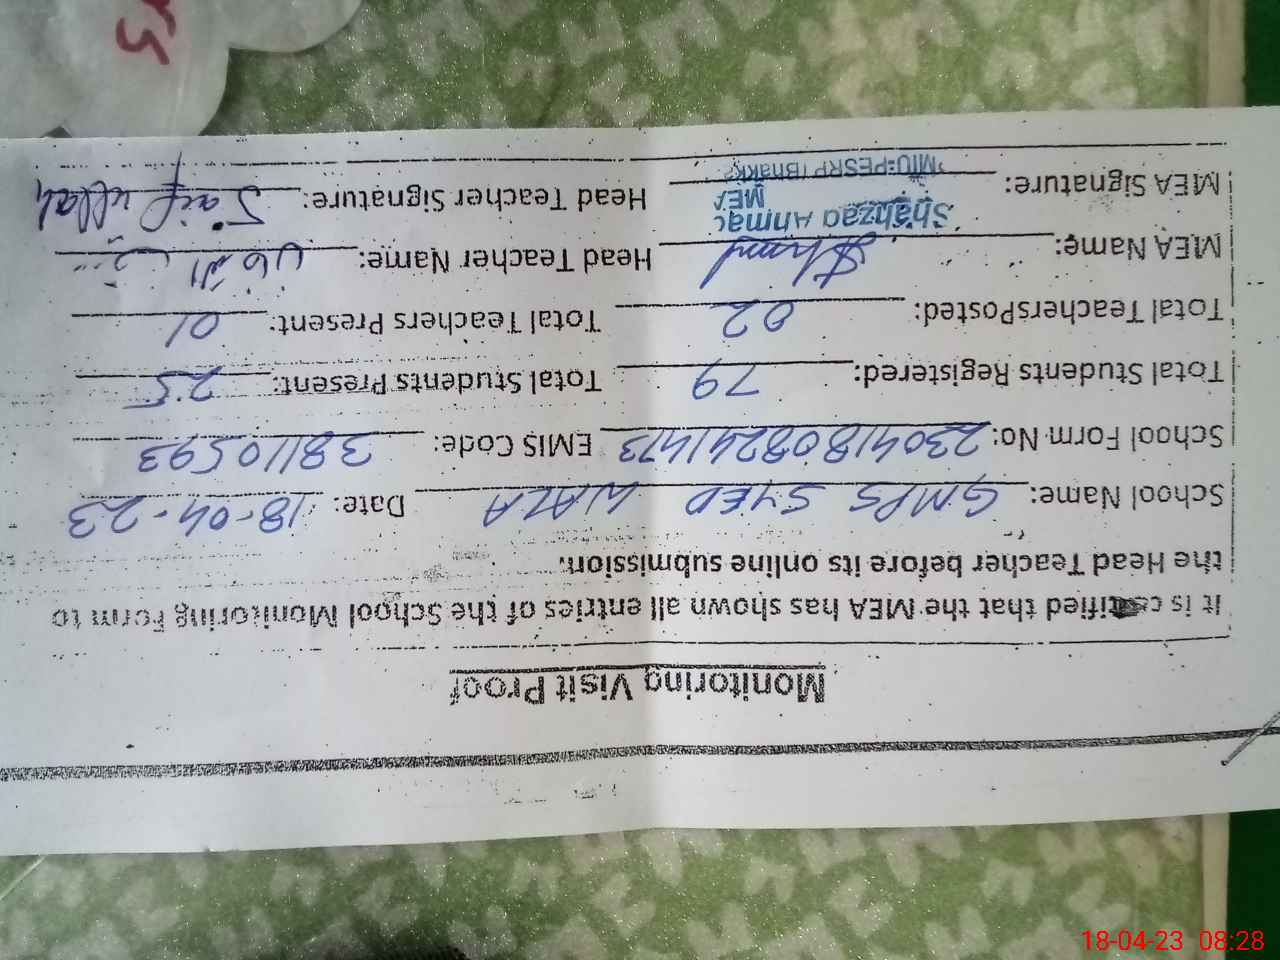 Monitoring Visit Proof
It is certified that the MEA has shown all entries of the School Monitoring Form to
the Head Teacher before its online submission.
School Name: GMPS SYED WALA Date: 18-04-23
School Form No: 230418082141473 EMIS Code: 38110593
Total Students Registered: 79 Total Students Present: 25
Total TeachersPosted: 02 Total Teachers Present: 01
MEA Name: Head Teacher Name:
Shahzad Ahmad
MEA
MEA Signature: Head Teacher Signature: Saif ullah
MIU-PESRP (Bhakk
18-04-23 08:28